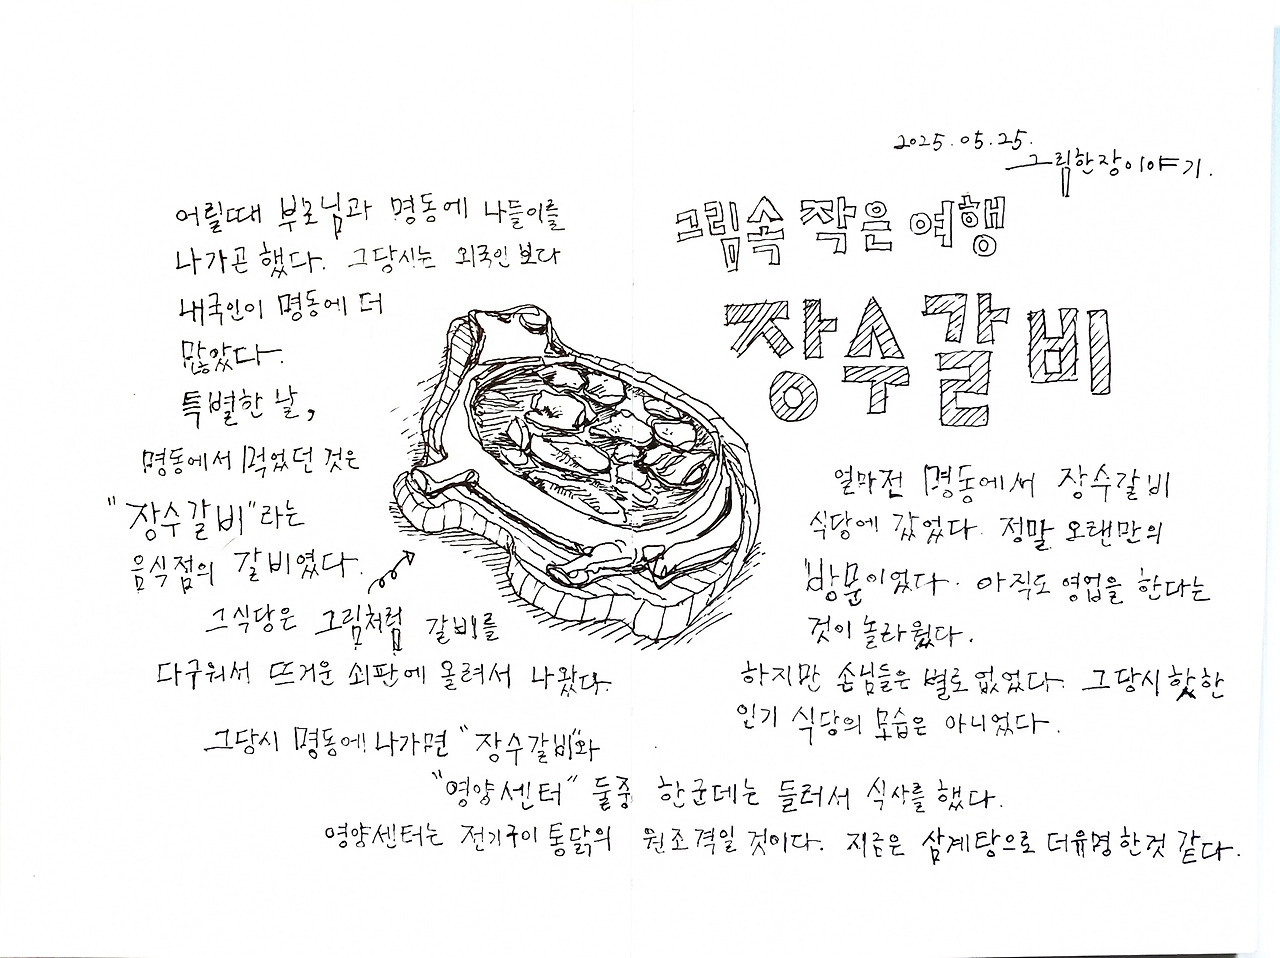 2025.05.25.
그림한장이야기.
그림속 작은 여행
장수갈비
어릴때 부모님과 명동에 나들이를
나가곤 했다. 그당시는 외국인 보다
내국인이 명동에 더
많았다.
특별한 날,
명동에서 먹었던 것은
"장수갈비"라는
음식점의 갈비였다.
그식당은 그림처럼 갈비를
다구워서 뜨거운 쇠판에 올려서 나왔다.
얼마전 명동에서 장수갈비
식당에 갔었다. 정말 오랜만의
방문이었다. 아직도 영업을 한다는
것이 놀라웠다.
하지만 손님들은 별로 없었다. 그당시 핫한
인기 식당의 모습은 아니었다.
그당시 명동에 나가면 "장수갈비"와
"영양센터" 둘중 한군데는 들러서 식사를 했다.
영양센터는 전기구이 통닭의 원조격일 것이다. 지금은 삼계탕으로 더유명한것 같다.